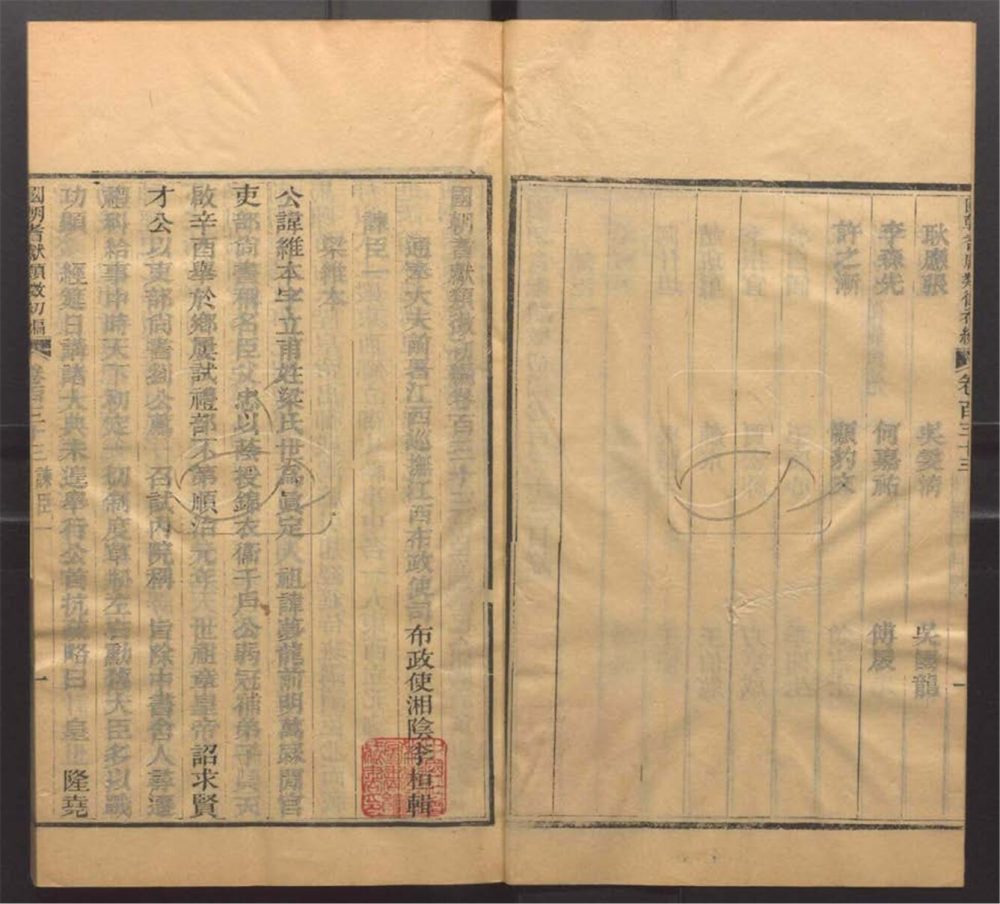 耿應張 吳愛 吳國龍
李森先 何嘉祐 傅扆
許之漸 顧豹文
卷百三十三
國朝耆獻類徵初編卷百三十三
通奉大夫前署江西巡撫江西布政使司布政使湘陰李桓輯
諫臣一
梁維本
公諱維本字立甫姓梁氏世為眞定人祖諱夢龍前明萬歷間官
吏部尚書稱名臣父忠以蔭授錦衣衞千戶公弱冠補弟子員天
啟辛酉舉於鄉屢試禮部不第順治元年 世祖章皇帝詔求賢
才公以吏部尚書劉公薦 召試內院稱 旨除中書舍人尋遷
禮科給事中時天下初定一切制度草刱左右勳舊大臣多以戰
功顯 經筵日講諸大典未遑舉行公首抗疏略曰 隆堯
國朝耆獻類徵初編 卷百三十三 諫臣一 一